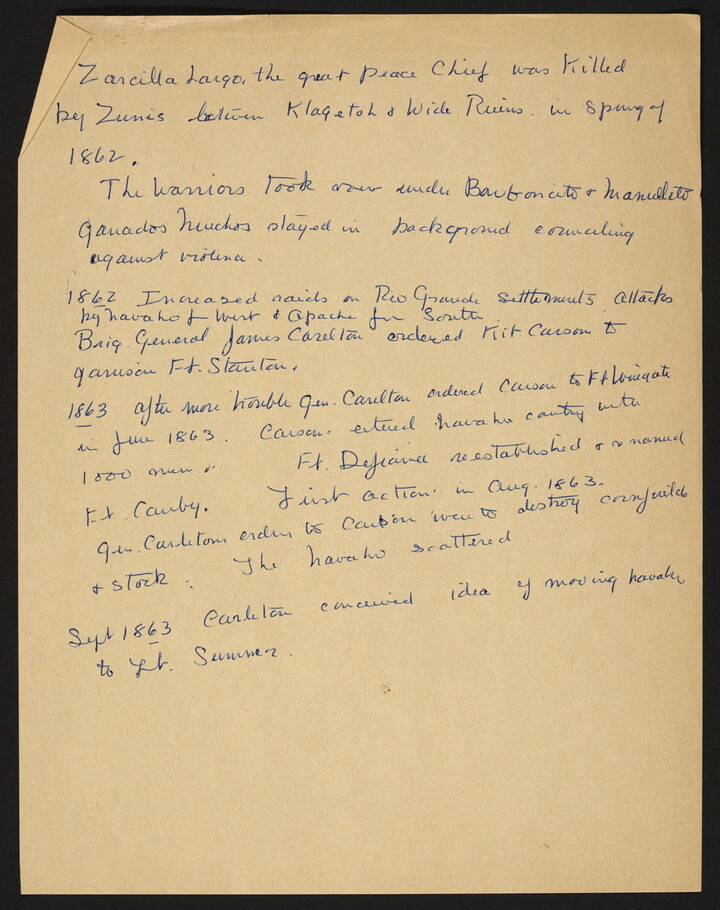 Zarcilla Largo, the great peace Chief was Killed
by Zunis between Klagetoh & Wide Ruins. in Spring of
1862.
The warriors took over under Barboncito & Manuelito
Ganados Muchos stayed in background counciling
against violence.
1862 Increased raids on Rio Grande settlements attacks
by navaho fr West & Apache fr South
Brig. General James Carelton ordered Kit Carson to
garrison Ft. Stanton.
1863 after more trouble Gen. Carlton ordered Carson to Ft Wingate
in June 1863. Carson entered navaho country with
1000 men. Ft. Defiance reestablished & renamed
Ft. Canby. First action in Aug. 1863.
Gen. Carletons orders to Carson were to destroy cornfields
& stock. The navaho scattered.
Sept 1863 Carleton conceived idea of moving navaho
to Ft. Sumner.